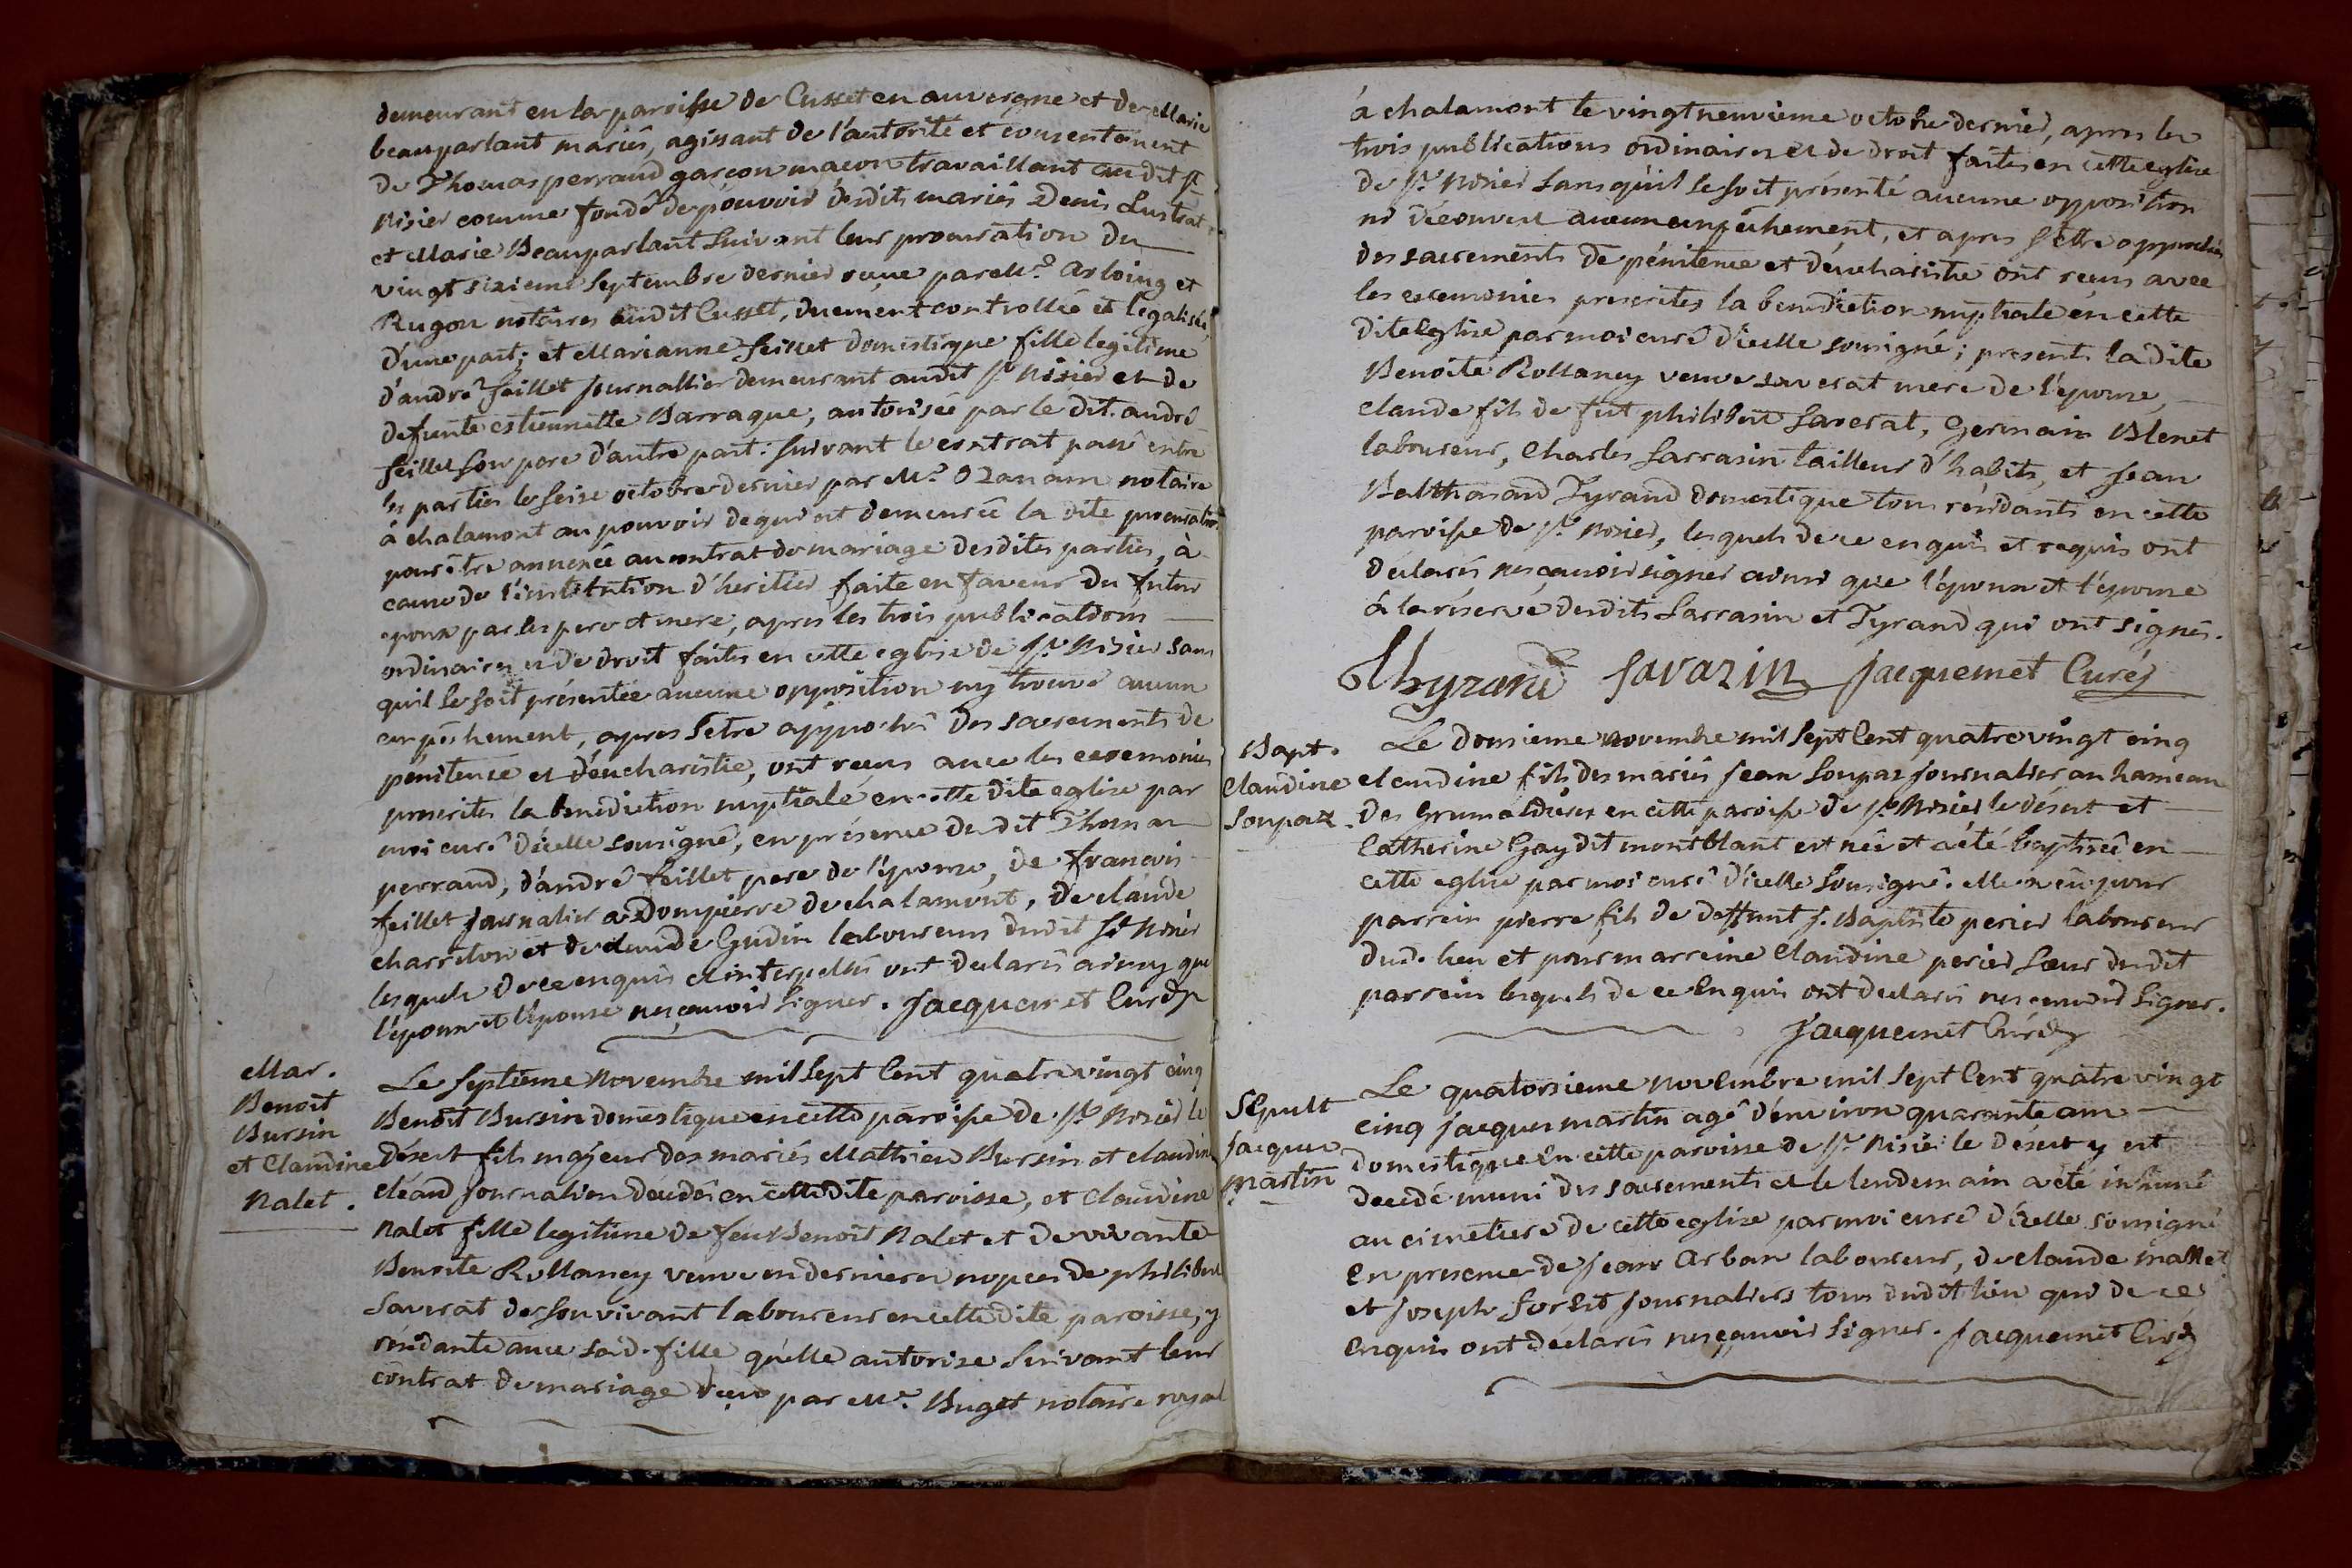 demeurant en la paroisse de Cusset en auvergne et de Marie
beauparlant mariés, agissant de l'autorité et consentement
de Thomas perraud garçon maçon travaillant audit St
Nisier comme fondé de pouvoir desdits mariés Denis Lustrat
et Marie Beauparlant suivant leur procuration du
vingt sixieme septembre dernier recue par Me. Arloing et
Rugon notaires audit Cusset, duement controllée et legalisée,
d'une part; et Marianne feillet domestique fille legitime
d'andré feillet journallier demeurant audit St. Nisier et de
defunte estiennette Barraque, autorisée par le dit andré
feillet son pere d'autre part: suivant le contrat passé entre
les parties le seise octobre dernier par Me. Ozanam notaire
à chalamont au pouvoir de qui est demeurée la dite procuration
pour être annexée au contrat de mariage desdites parties, à
cause de l'institution d'heritier faite en faveur du futur
epoux par les pere et mere, apres les trois publications
ordinaires et de droit faites en cette eglise de St. Nisier sans
qu'il se soit présentée aucune opposition ny trouvé aucun
empêchement, apres s'etre approché des sacrements de
pénitence et d'eucharistie, ont recus avec les ceremonies
prescrites la benediction nuptiale en cette dite eglise par
moi curé d'icelle sousigné, en présence du dit Thomas
perraud, d'andré feillet pere de l'épouse, de francois
feillet journalier a Dompierre de chalamont, de claude
charrelon et de claude Gudin laboureurs dudit St Nisier
lesquels de ce enquis et interpellés ont declarés ainsy que
l'époux et l'épouse ne sçavoir signer. Jacquemet Curé
Mar.
Benoit
Bursin
et Claudine
Nalet.
Le septieme Novembre mil sept cent quatre vingt cinq
Benoit Bursin domestique en cette paroisse de St. Nisier le
désert fils majeur des mariés Mathieu Bursin et claudine
cléaud journalier décédé en cette dite paroisse, et Claudine
Nalet fille legitime de feu Benoit Nalet et de vivante
Benoite Rollancy veuve en dernieres nopces de philibert
Saverat de son vivant laboureur en cette dite paroisse, y
résidante avec sad. fille qu'elle autorise suivant leur
contrat de mariage recu par Me. Buget notaire royal
à chalamont le vingt neuvieme octobre dernier, apres les
trois publications ordinaires et de droit faites en cette eglise
de St. Nisier sans qu'il se soit présenté aucune opposition
ni découvert aucun empêchement, et apres s'être approchés
des sacrements de pénitence et d'eucharistie ont recus avec
les ceremonies prescrites la benediction nuptiale en cette
dite Eglise par moi curé d'icelle sousigné; presents la dite
Benoite Rollancy veuve saverat mere de l'épouse,
claude fils de fut philibert saverat, Germain Blenet
laboureur, Charles Sarrasin tailleur d'habits, et Jean
Balthasard Tyrand domestique tous résidants en cette
paroisse de St. Nisier, lesquels de ce enquis et requis ont
declarés ne sçavoir signer ainsi que l'époux et l'épouse
à la réserve desdits Sarrasin et Tyrand qui ont signés.
Thyrand Savazin Jacquemet Curé
Bapt.
Claudine
Soupaz.
Le Dousieme novembre mil sept cent quatre vingt cinq
claudine fils des mariés Jean Soupaz journalier au hameau
des Grumaldieres en cette paroisse de St. Nisier le désert et
Catherine Gay dit montblant est née et a été baptisée en
cette eglise par moi curé d'icelle sousigné. elle a eu pour
parrein pierre fils de deffunt J. Baptiste perier laboureur
dud. lieu et pour marreine Claudine perier sœur dudit
parrein lesquels de ce enquis ont declarés ne sçavoir signer.
Jacquemet Curé
Sepult
Jacques
Martin
Le quatorsieme novembre mil sept cent quatre vingt
cinq Jacques martin agé d'environ quarante ans
domestique en cette paroisse de St. Nisier le désert y est
decedé muni des sacrements et le lendemain a été inhumé
au cimetiere de cette eglise par moi curé d'icelle sousigné
en presence de Jean Arban laboureur, de claude mallet
et Joseph forest journaliers tous dudit lieu qui de ce
enquis ont declarés ne sçavoir signer. Jacquemet Curé